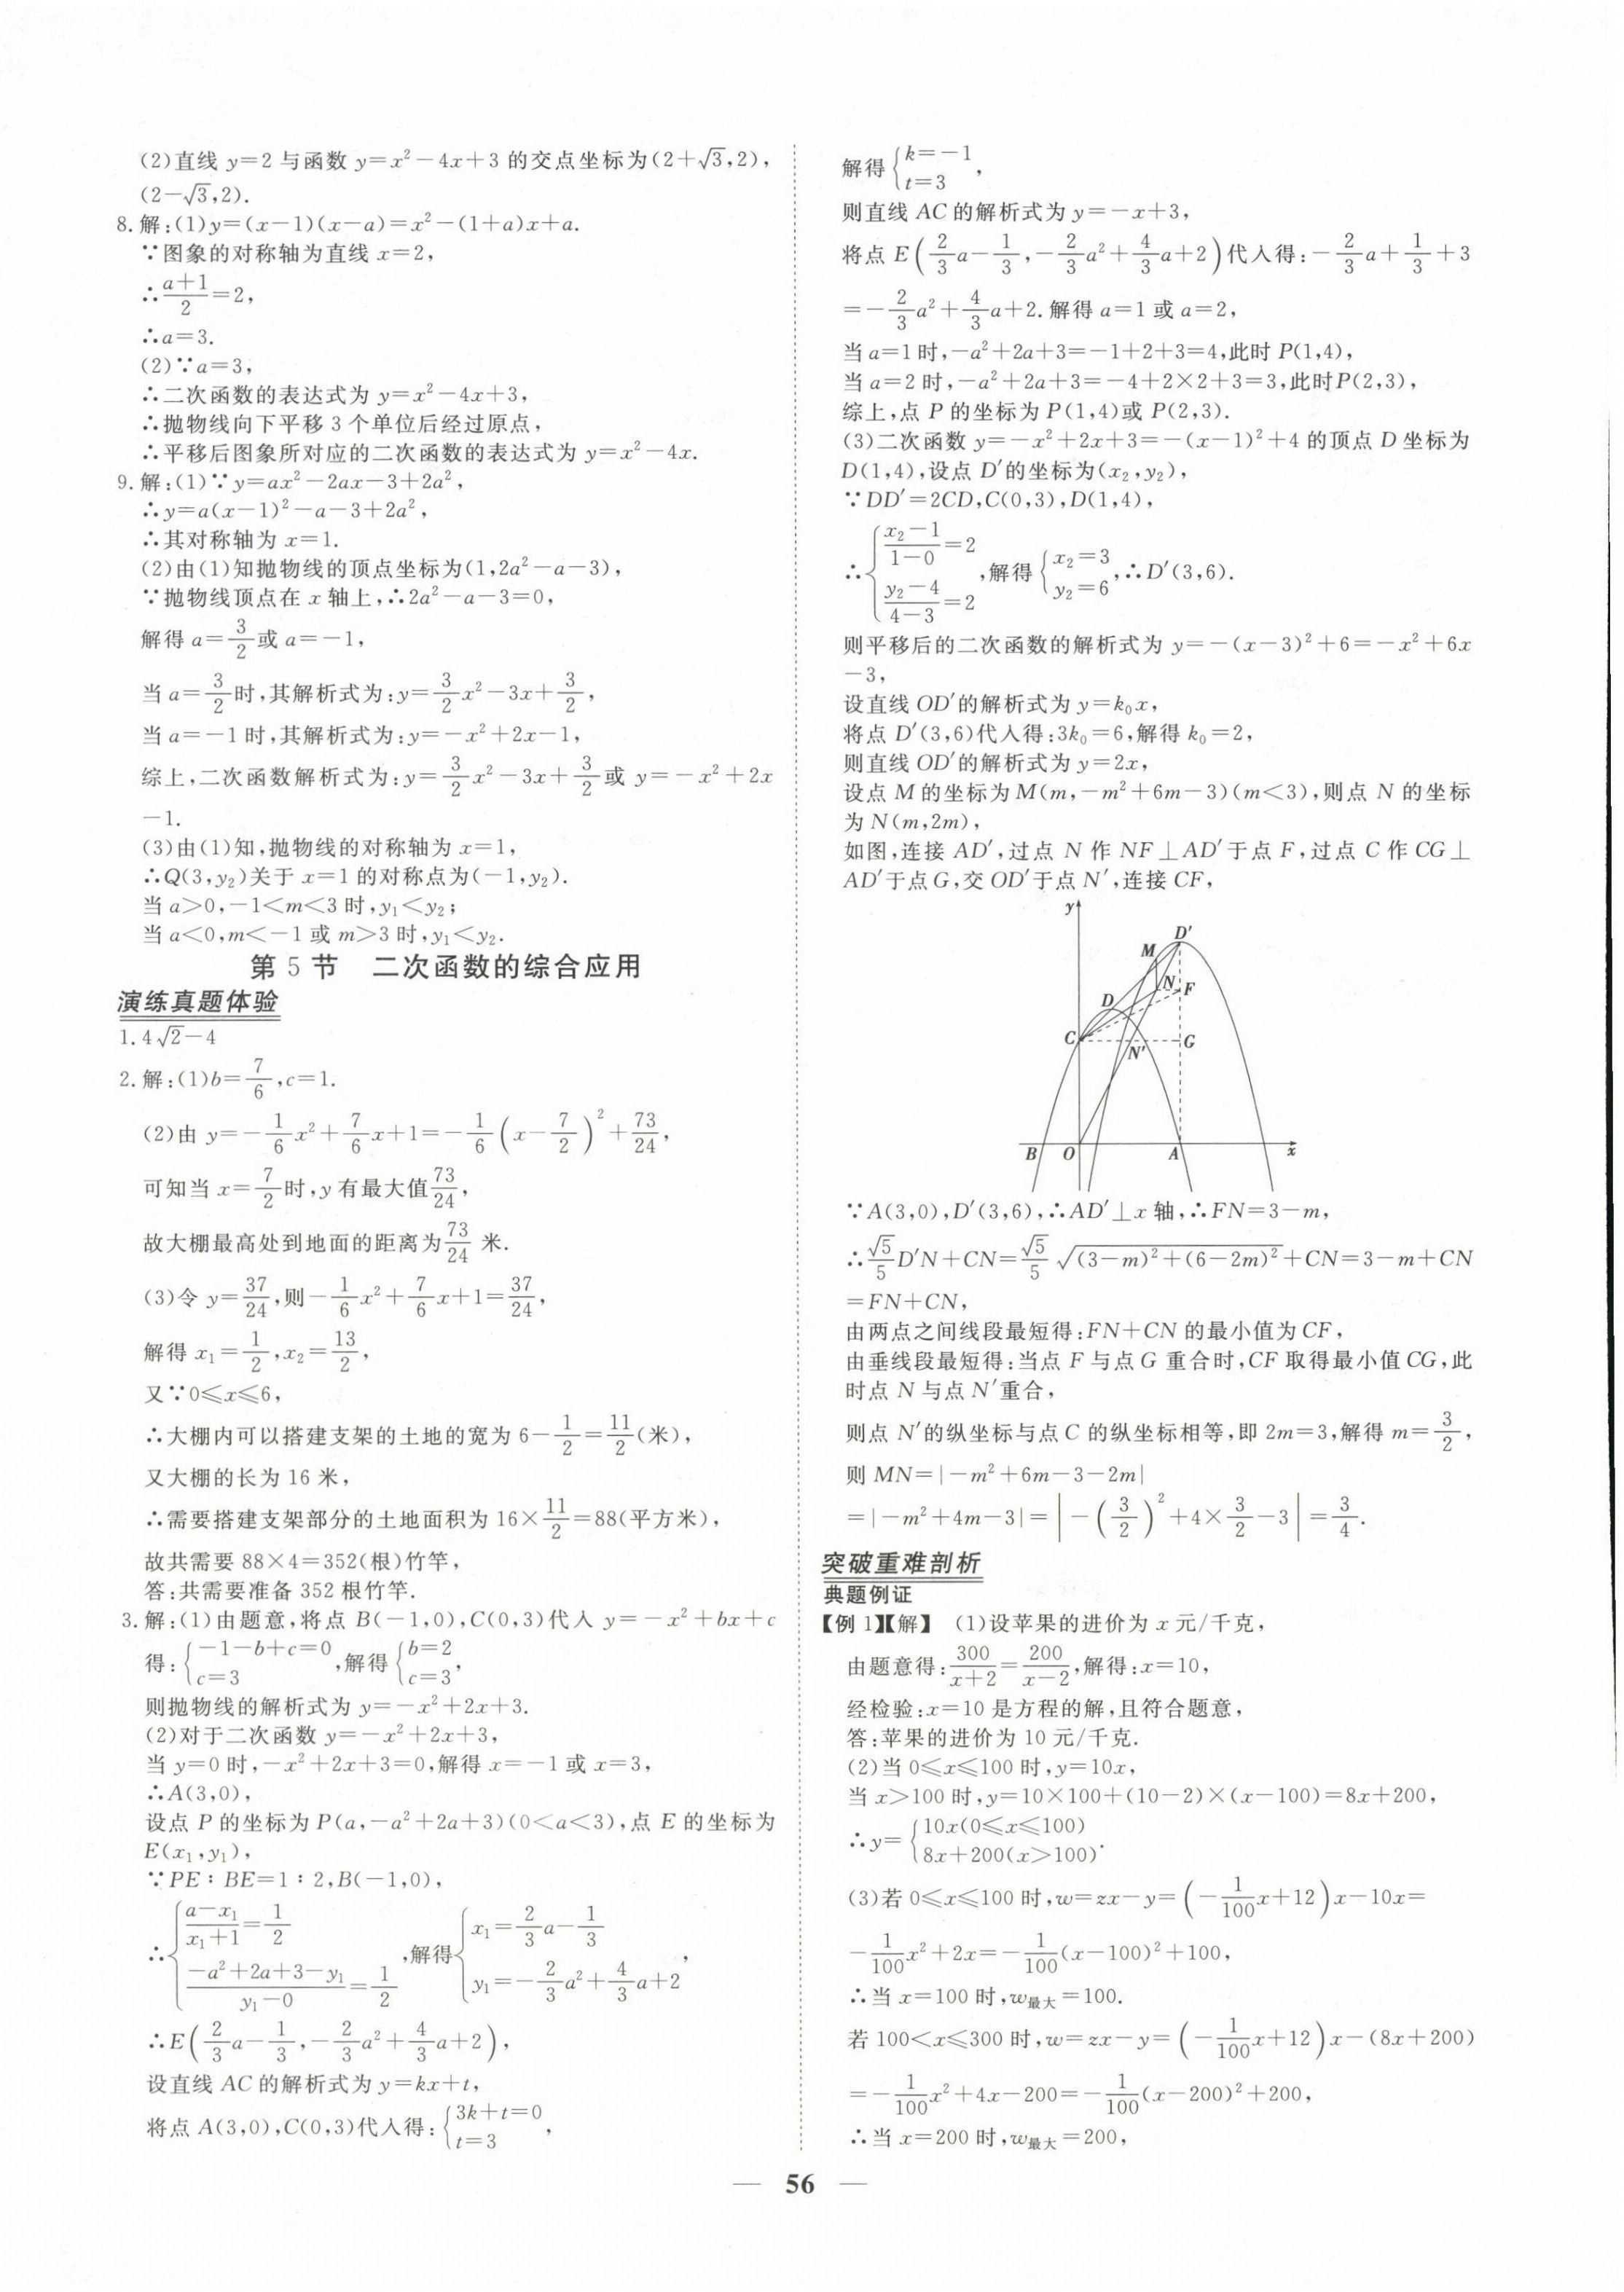 (2)直线 y=2 与函数 y=x²-4x+3 的交点坐标为(2+√3,2),
(2-√3,2).
8.解:(1)y=(x-1)(x-a)=x²-(1+a)x+a.
∵图象的对称轴为直线 x=2,
∴(a+1)/2=2,
∴a=3.
(2)∵a=3,
∴二次函数的表达式为 y=x²-4x+3,
∴抛物线向下平移 3 个单位后经过原点,
∴平移后图象所对应的二次函数的表达式为 y=x²-4x.
9.解:(1)∵y=ax²-2ax-3+2a²,
∴y=a(x-1)²-a-3+2a²,
∴其对称轴为 x=1.
(2)由(1)知抛物线的顶点坐标为(1,2a²-a-3),
∵抛物线顶点在 x 轴上,∴2a²-a-3=0,
解得 a=3/2或 a=-1,
当 a=3/2时,其解析式为:y=3/2x²-3x+3/2,
当 a=-1 时,其解析式为:y=-x²+2x-1,
综上,二次函数解析式为:y=3/2x²-3x+3/2或 y=-x²+2x
-1.
(3)由(1)知,抛物线的对称轴为 x=1,
∴Q(3,y₂)关于 x=1 的对称点为(-1,y₂).
当 a>0,-1<m<3 时,y₁<y₂;
当 a<0,m<-1 或 m>3 时,y₁<y₂.
第 5 节 二次函数的综合应用
演练真题体验
1.4√2-4
2.解:(1)b=7/6,c=1.
(2)由 y=-1/6x²+7/6x+1=-1/6(x-7/2)²+73/24,
可知当 x=7/2时,y 有最大值73/24,
故大棚最高处到地面的距离为73/24 米.
(3)令 y=37/24,则-1/6x²+7/6x+1=37/24,
解得 x₁=1/2,x₂=13/2,
又∵0≤x≤6,
∴大棚内可以搭建支架的土地的宽为 6-1/2=11/2(米),
又大棚的长为 16 米,
∴需要搭建支架部分的土地面积为 16×11/2=88(平方米),
故共需要 88×4=352(根)竹竿,
答:共需要准备 352 根竹竿.
3.解:(1)由题意,将点 B(-1,0),C(0,3)代入 y=-x²+bx+c
得:{-1-b+c=0 c=3,解得{b=2 c=3,
则抛物线的解析式为 y=-x²+2x+3.
(2)对于二次函数 y=-x²+2x+3,
当 y=0 时,-x²+2x+3=0,解得 x=-1 或 x=3,
∴A(3,0),
设点 P 的坐标为 P(a,-a²+2a+3)(0<a<3),点 E 的坐标为
E(x₁,y₁),
∵PE∶BE=1∶2,B(-1,0),
∴{(a-x₁)/(x₁+1)=1/2 (-a²+2a+3-y₁)/(y₁-0)=1/2,解得{x₁=2/3a-1/3 y₁=-2/3a²+4/3a+2,
∴E(2/3a-1/3,-2/3a²+4/3a+2),
设直线 AC 的解析式为 y=kx+t,
将点 A(3,0),C(0,3)代入得:{3k+t=0 t=3,
解得{k=-1 t=3,
则直线 AC 的解析式为 y=-x+3,
将点 E(2/3a-1/3,-2/3a²+4/3a+2)代入得:-2/3a+1/3+3
=-2/3a²+4/3a+2.解得 a=1 或 a=2,
当 a=1 时,-a²+2a+3=-1+2+3=4,此时 P(1,4),
当 a=2 时,-a²+2a+3=-4+2×2+3=3,此时P(2,3),
综上,点 P 的坐标为 P(1,4)或 P(2,3).
(3)二次函数 y=-x²+2x+3=-(x-1)²+4 的顶点 D 坐标为
D(1,4),设点 D′的坐标为(x₂,y₂),
∵DD′=2CD,C(0,3),D(1,4),
∴{(x₂-1)/(1-0)=2 (y₂-4)/(4-3)=2,解得{x₂=3 y₂=6,∴D′(3,6).
则平移后的二次函数的解析式为 y=-(x-3)²+6=-x²+6x
-3,
设直线 OD′的解析式为 y=k₀x,
将点 D′(3,6)代入得:3k₀=6,解得 k₀=2,
则直线 OD′的解析式为 y=2x,
设点 M 的坐标为 M(m,-m²+6m-3)(m<3),则点 N 的坐标
为 N(m,2m),
如图,连接 AD′,过点 N 作 NF⊥AD′于点 F,过点 C 作 CG⊥
AD′于点 G,交 OD′于点 N′,连接 CF,
y
D′
M
N
F
D
C
G
N′
B
O
A
x
∵A(3,0),D′(3,6),∴AD′⊥x 轴,∴FN=3-m,
∴√5/5D′N+CN=√5/5√((3-m)²+(6-2m)²)+CN=3-m+CN
=FN+CN,
由两点之间线段最短得:FN+CN 的最小值为 CF,
由垂线段最短得:当点 F 与点 G 重合时,CF 取得最小值 CG,此
时点 N 与点 N′重合,
则点 N′的纵坐标与点 C 的纵坐标相等,即 2m=3,解得 m=3/2,
则 MN=|-m²+6m-3-2m|
=|-m²+4m-3|=|-(3/2)²+4×3/2-3|=3/4.
突破重难剖析
典题例证
【例 1】【解】 (1)设苹果的进价为 x 元/千克,
由题意得:300/(x+2)=200/(x-2),解得:x=10,
经检验:x=10 是方程的解,且符合题意,
答:苹果的进价为 10 元/千克.
(2)当 0≤x≤100 时,y=10x,
当 x>100 时,y=10×100+(10-2)×(x-100)=8x+200,
∴y={10x(0≤x≤100) 8x+200(x>100).
(3)若 0≤x≤100 时,w=zx-y=(-1/100x+12)x-10x=
-1/100x²+2x=-1/100(x-100)²+100,
∴当 x=100 时,w最大=100.
若 100<x≤300 时,w=zx-y=(-1/100x+12)x-(8x+200)
=-1/100x²+4x-200=-1/100(x-200)²+200,
∴当 x=200 时,w最大=200,
— 56 —